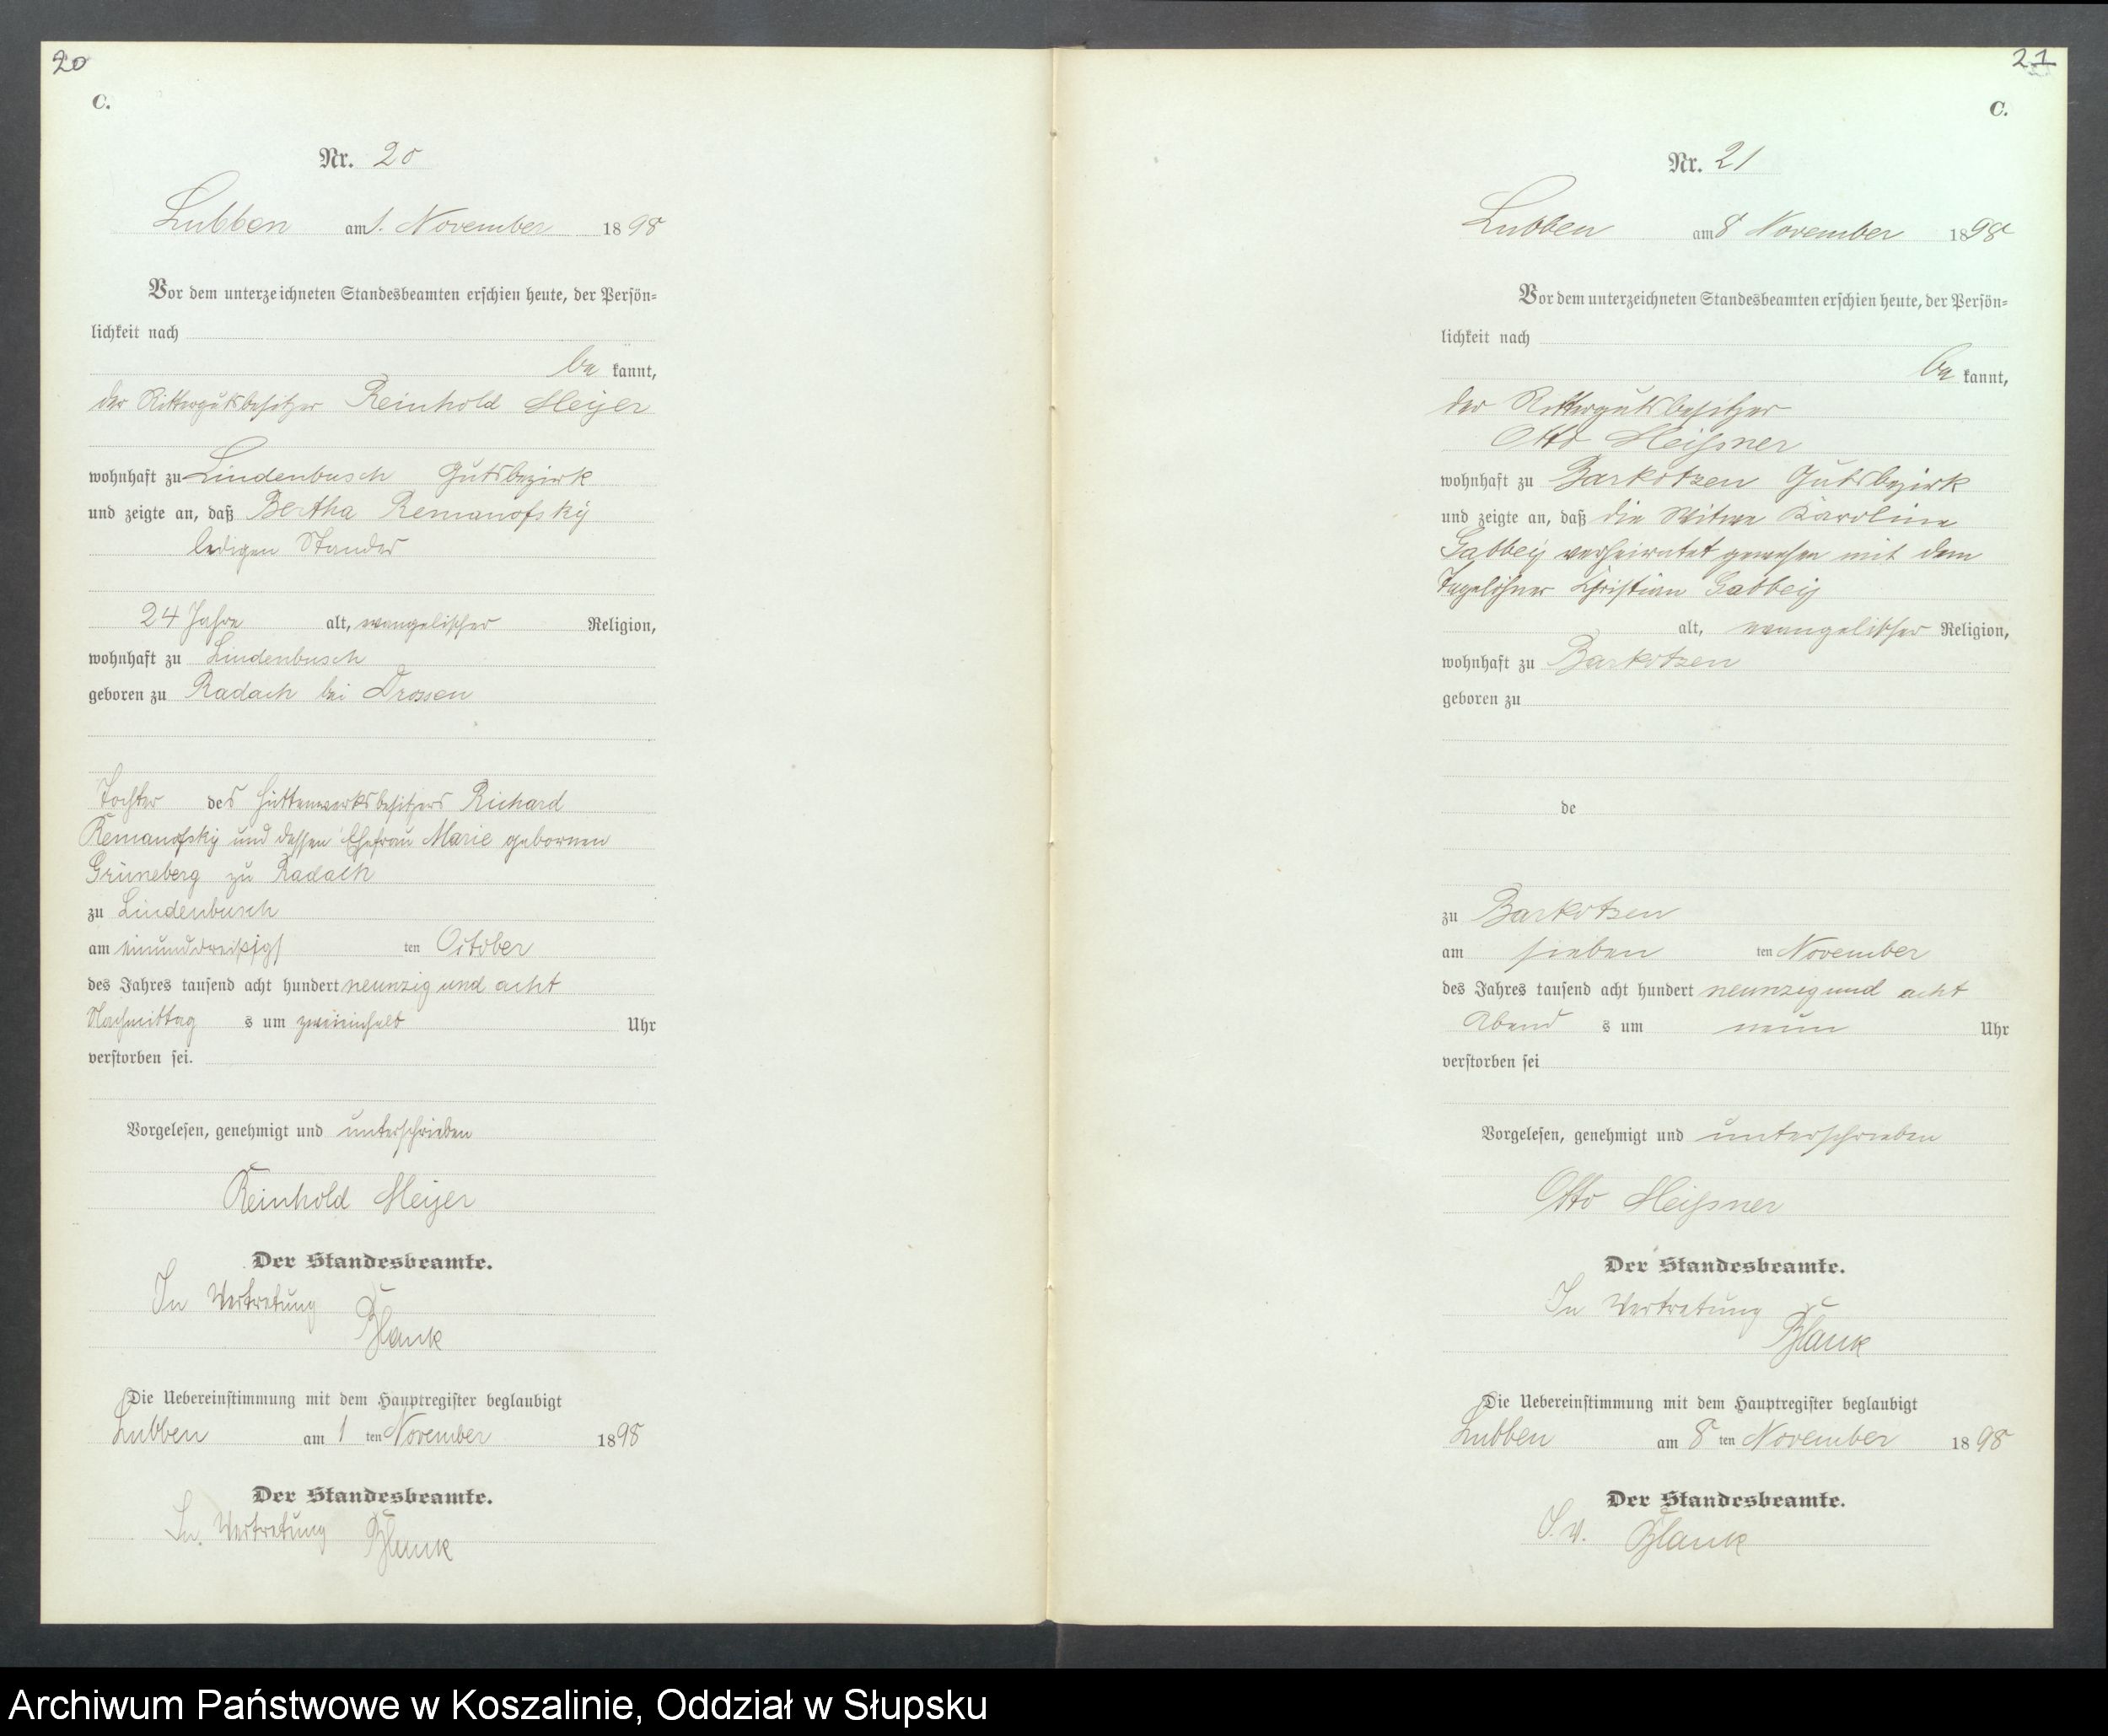 20
C.
Nr. 20
Lubben am 1. November 1898
Vor dem unterzeichneten Standesbeamten erschien heute, der Persön=
lichkeit nach
be kannt,
der Rittergutsbesitzer Reinhold Meyer
wohnhaft zu Lindenbusch Gutsbezirk
und zeigte an, daß Bertha Remanofsky
ledigen Standes
24 Jahre alt, evangelischer Religion,
wohnhaft zu Lindenbusch
geboren zu Radach bei Drossen
Tochter des Hüttenwerksbesitzers Richard
Remanofsky und dessen Ehefrau Marie gebornen
Grüneberg zu Radach
zu Lindenbusch
am einunddreißigs ten October
des Jahres tausend acht hundert neunzig und acht
Nachmittag s um Uhr
verstorben sei.
Vorgelesen, genehmigt und unterschrieben
Reinhold Meyer
Der Standesbeamte.
In Vertretung
Blank
Die Uebereinstimmung mit dem Hauptregister beglaubigt
Lubben am 1 ten November 1898
Der Standesbeamte.
In Vertretung Blank
21
C.
Nr. 21
Lubben am 8 November 1898
Vor dem unterzeichneten Standesbeamten erschien heute, der Persön=
lichkeit nach
be kannt,
der Rittergutsbesitzer
Otto Meißner
wohnhaft zu Barkotzen Gutsbezirk
und zeigte an, daß die Witwe Karoline
Gabbey verheiratet gewesen mit dem
Tagelöhner Christian Gabbey
alt, evangelischer Religion,
wohnhaft zu Barkotzen
geboren zu
de
zu Barkotzen
am sieben ten November
des Jahres tausend acht hundert neunzig und acht
Abend s um neun Uhr
verstorben sei
Vorgelesen, genehmigt und unterschrieben
Otto Meißner
Der Standesbeamte.
In Vertretung
Blank
Die Uebereinstimmung mit dem Hauptregister beglaubigt
Lubben am 8 ten November 1898
Der Standesbeamte.
I. V. Blank
Archiwum Państwowe w Koszalinie, Oddział w Słupsku